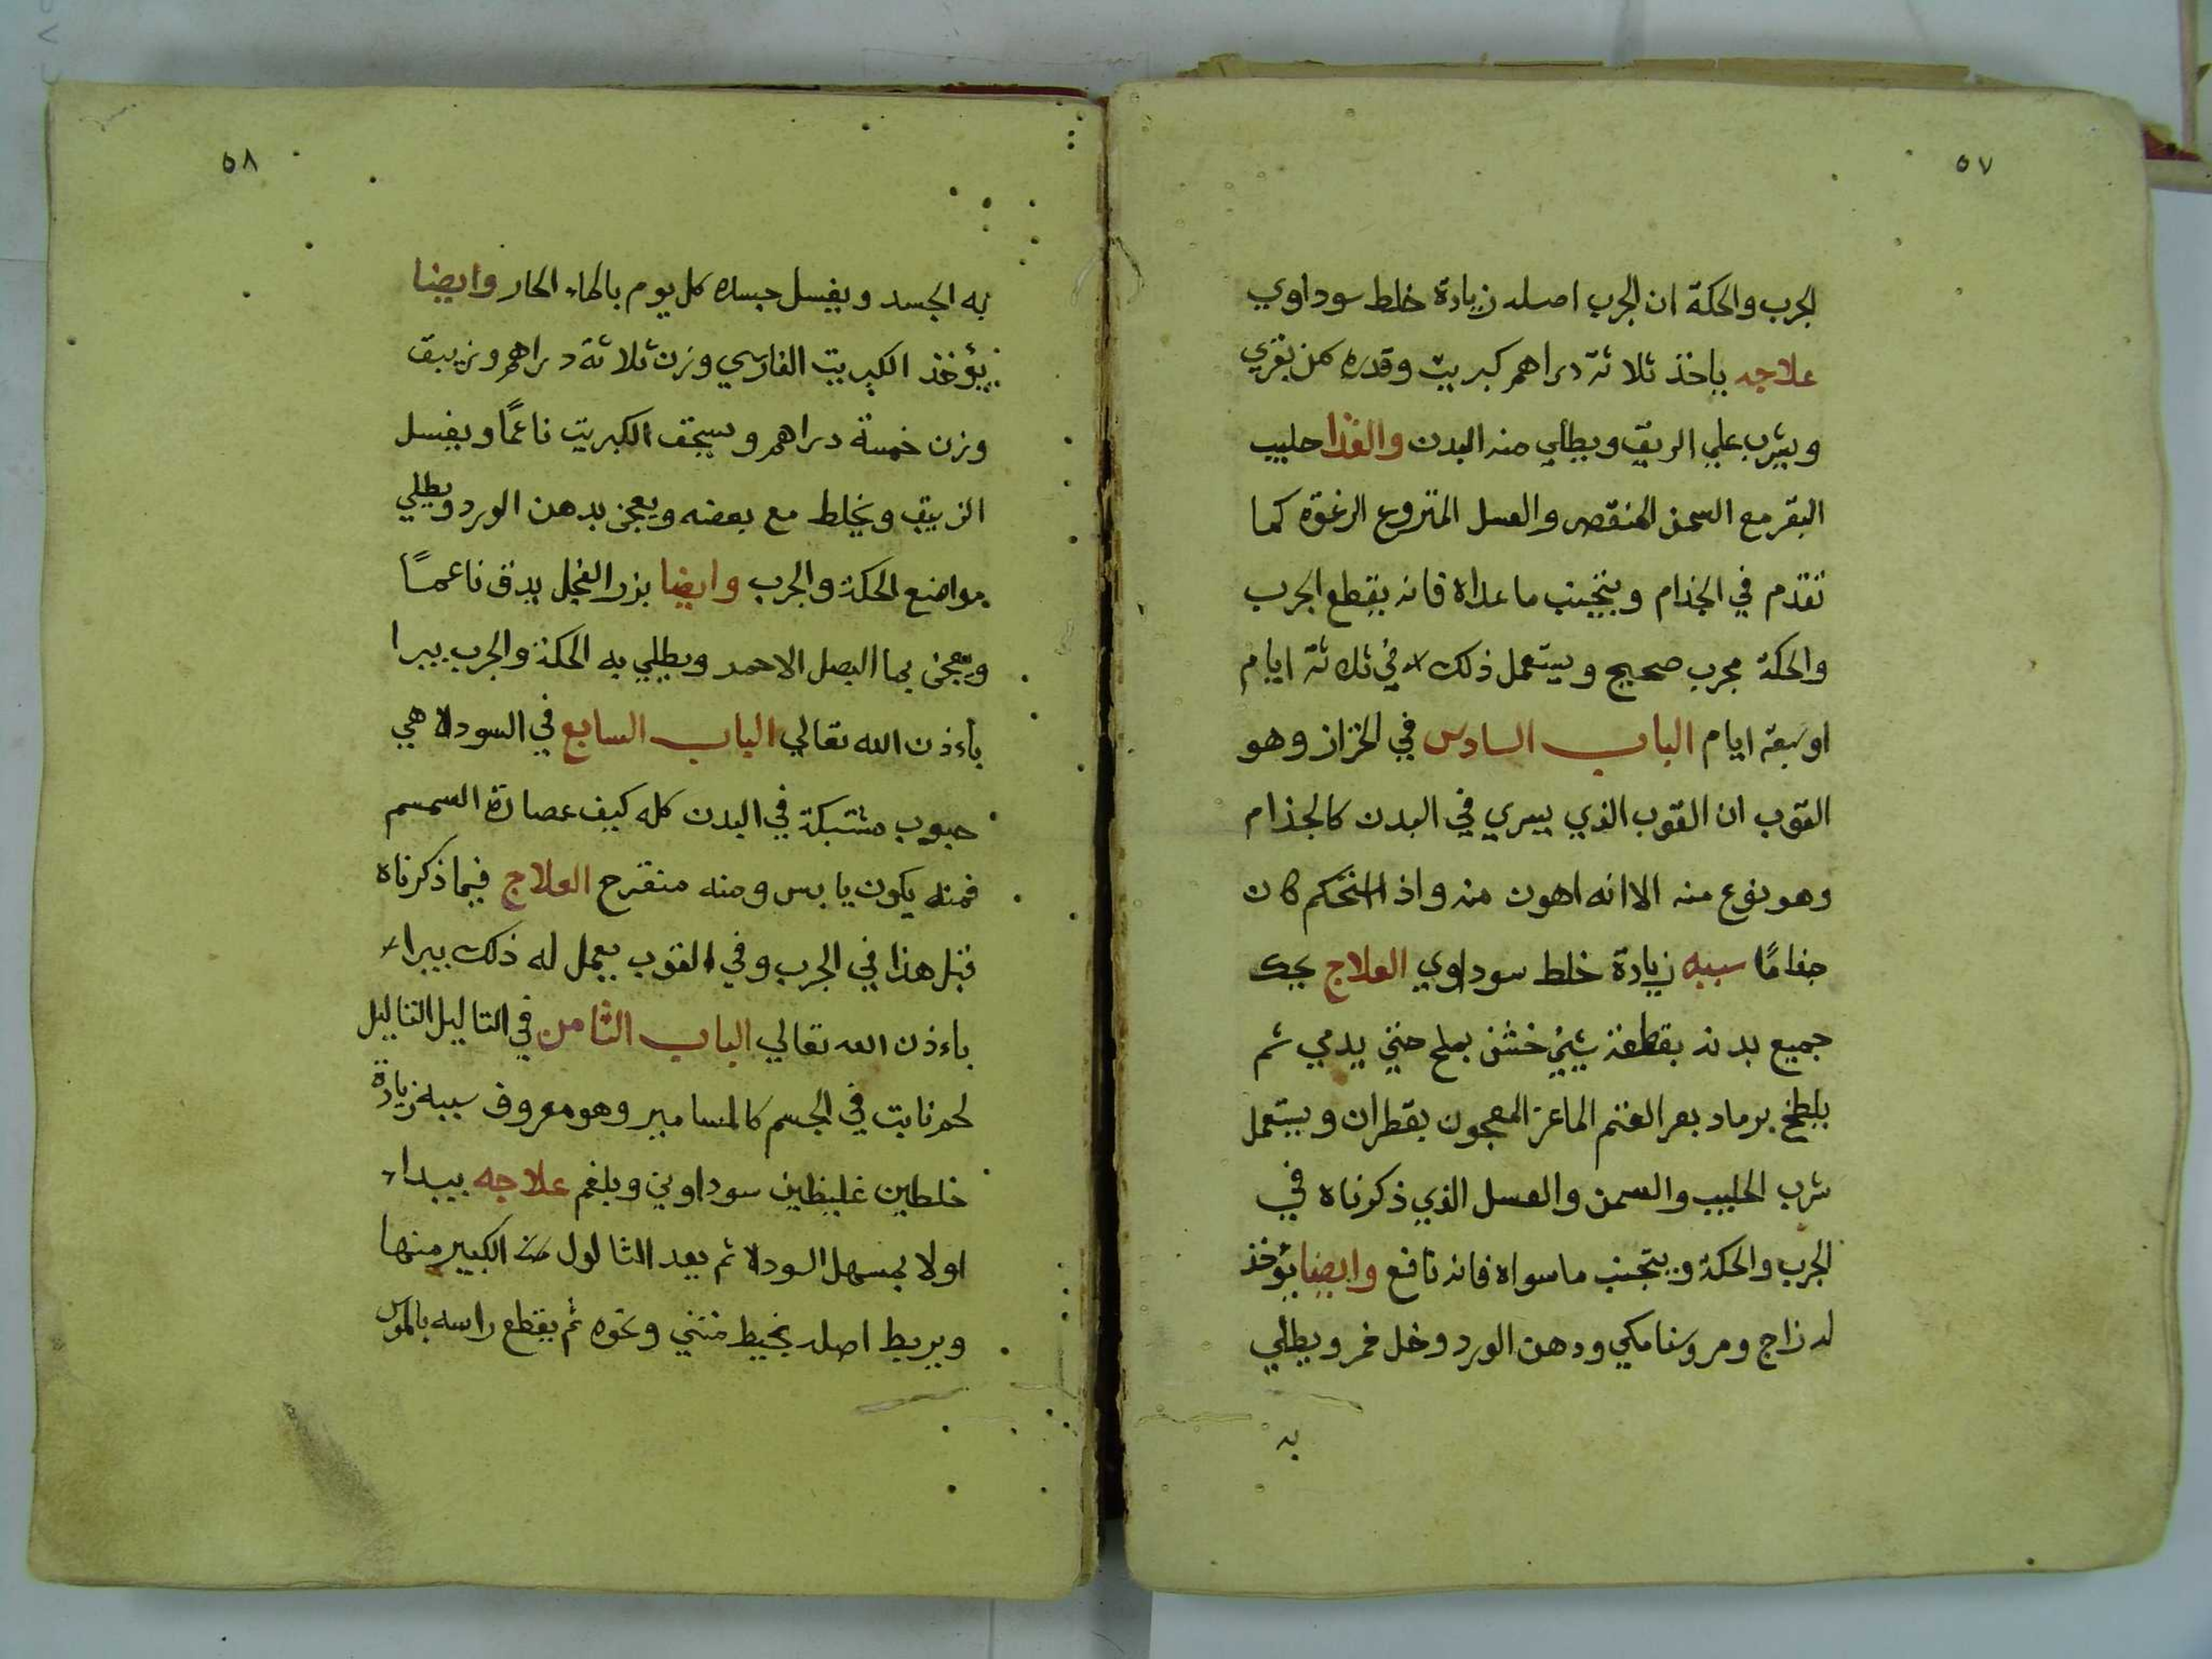 ٥٧
الجرب والحكة ان الجرب اصله زيادة خلط سوداوي
علاجه ياخذ ثلاثة دراهم كبريت وقدره سمن بقري
ويشرب علي الريق ويطلي منه البدن والغذا حليب
البقر مع السمن المنقص والعسل المنزوع الرغوة كما
تقدم في الجذام ويتجنب ما عداه فانه يقطع الجرب
والحكة مجرب صحيح ويستعمل ذلك في ثلاثة ايام
او سبعة ايام الباب السادس في الخزاز وهو
القوب ان القوب الذي يسري في البدن كالجذام
وهو نوع منه الا انه اهون منه واذا استحكم كان
جذامًا سببه زيادة خلط سوداوي العلاج يحك
جميع بدنه بقطعة شيئ خشن بملح حتي يدمي ثم
يلطخ برماد بعر الغنم الماعز المعجون بقطران ويستعمل
شرب الحليب والسمن والعسل الذي ذكرناه في
الجرب والحكة ويتجنب ما سواه فانه نافع وايضا يؤخذ
له زاج ومر وسنامكي ودهن الورد وخل خمر ويطلي
به
٥٨
به الجسد ويغسل جسده كل يوم بالماء الحار وايضا
يؤخذ الكبريت الفارسي وزن ثلاثة دراهم وزيبق
وزن خمسة دراهم ويسحق الكبريت ناعمًا ويغسل
الزيبق ويخلط مع بعضه ويعجن بدهن الورد ويطلي
مواضع الحكة والجرب وايضا بزر الفجل يدق ناعمًا
ويعجن بما البصل الاحمر ويطلي به الحكة والجرب يبرا
باءذن الله تعالي الباب السابع في السودلا هي
حبوب مشتبكة في البدن كله كيف عصارة السمسم
فمنه يكون يابس ومنه متقرح العلاج فيما ذكرناه
قبل هذا في الجرب وفي القوب يعمل له ذلك يبراء
باءذن الله تعالي الباب الثامن في الثاليل الثاليل
لحم نابت في الجسم كالمسامير وهو معروف سببه زيادة
خلطين غليظين سوداوي وبلغم علاجه يبداء
اولا بمسهل السودلا ثم يعد الثالول الكبير منها
ويربط اصله بخيط متني ونحوه ثم يقطع راسه بالموس